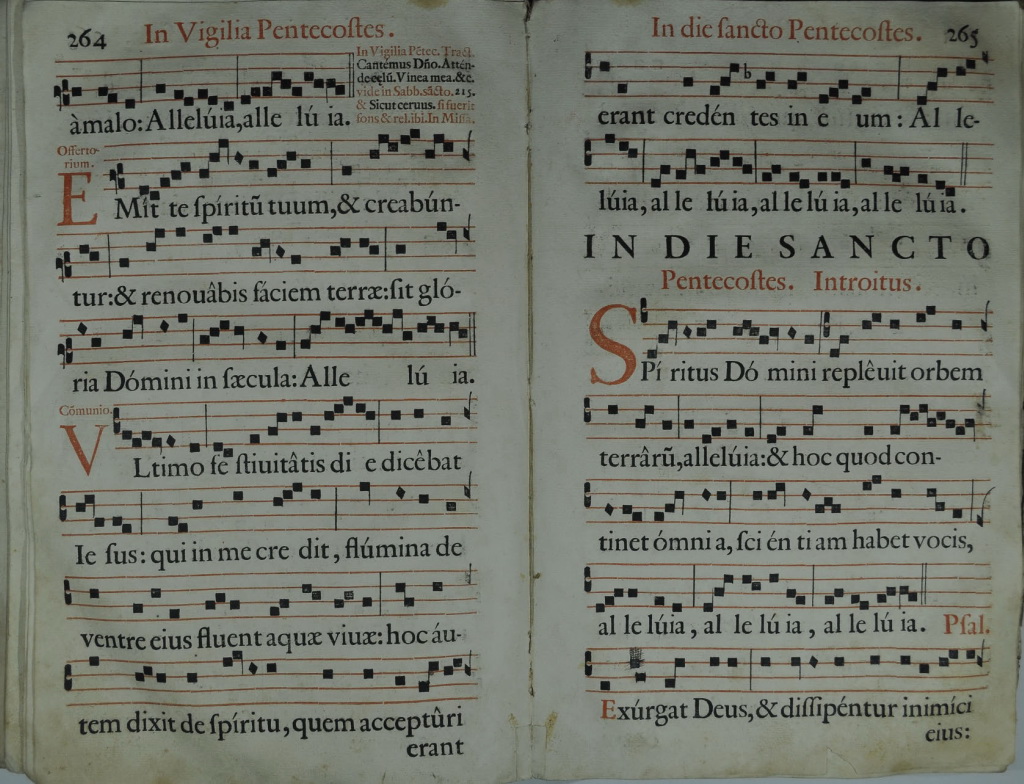 264
In Vigilia Pentecoſtes.
In Vigilia Pẽtec. Tract.
Cantemus Dño. Attén-
de cælū. Vinea mea. &c.
vide in Sabb. sācto. 215.
& Sicut ceruus. ſi fuerit
ſons & rel. ibi. In Miſſa.
àmalo: Allelúia, alle lú ia.
Offerto-
rium.
E Mít te ſpíritũ tuum, & creabún-
tur: & renouâbis fáciem terræ: ſit gló-
ria Dómini in ſæcula: Alle lú ia.
Cômunio.
VLtimo fe ſtiuitâtis di e dicêbat
Ie ſus: qui in me cre dit, flúmina de
ventre eius fluent aquæ viuæ: hoc áu-
tem dixit de ſpíritu, quem acceptûri
erant
In die ſancto Pentecoſtes. 265
erant credén tes in e um: Al le-
lúia, al le lú ia, al le lú ia, al le lú ia.
IN DIE SANCTO
Pentecoſtes. Introitus.
SPí ritus Dó mini replêuit orbem
terrârũ, allelúia: & hoc quod con-
tinet ómni a, ſci én ti am habet vocis,
al le lúia, al le lú ia, al le lú ia. Pſal.
Exúrgat Deus, & diſſipéntur inimíci
eius: